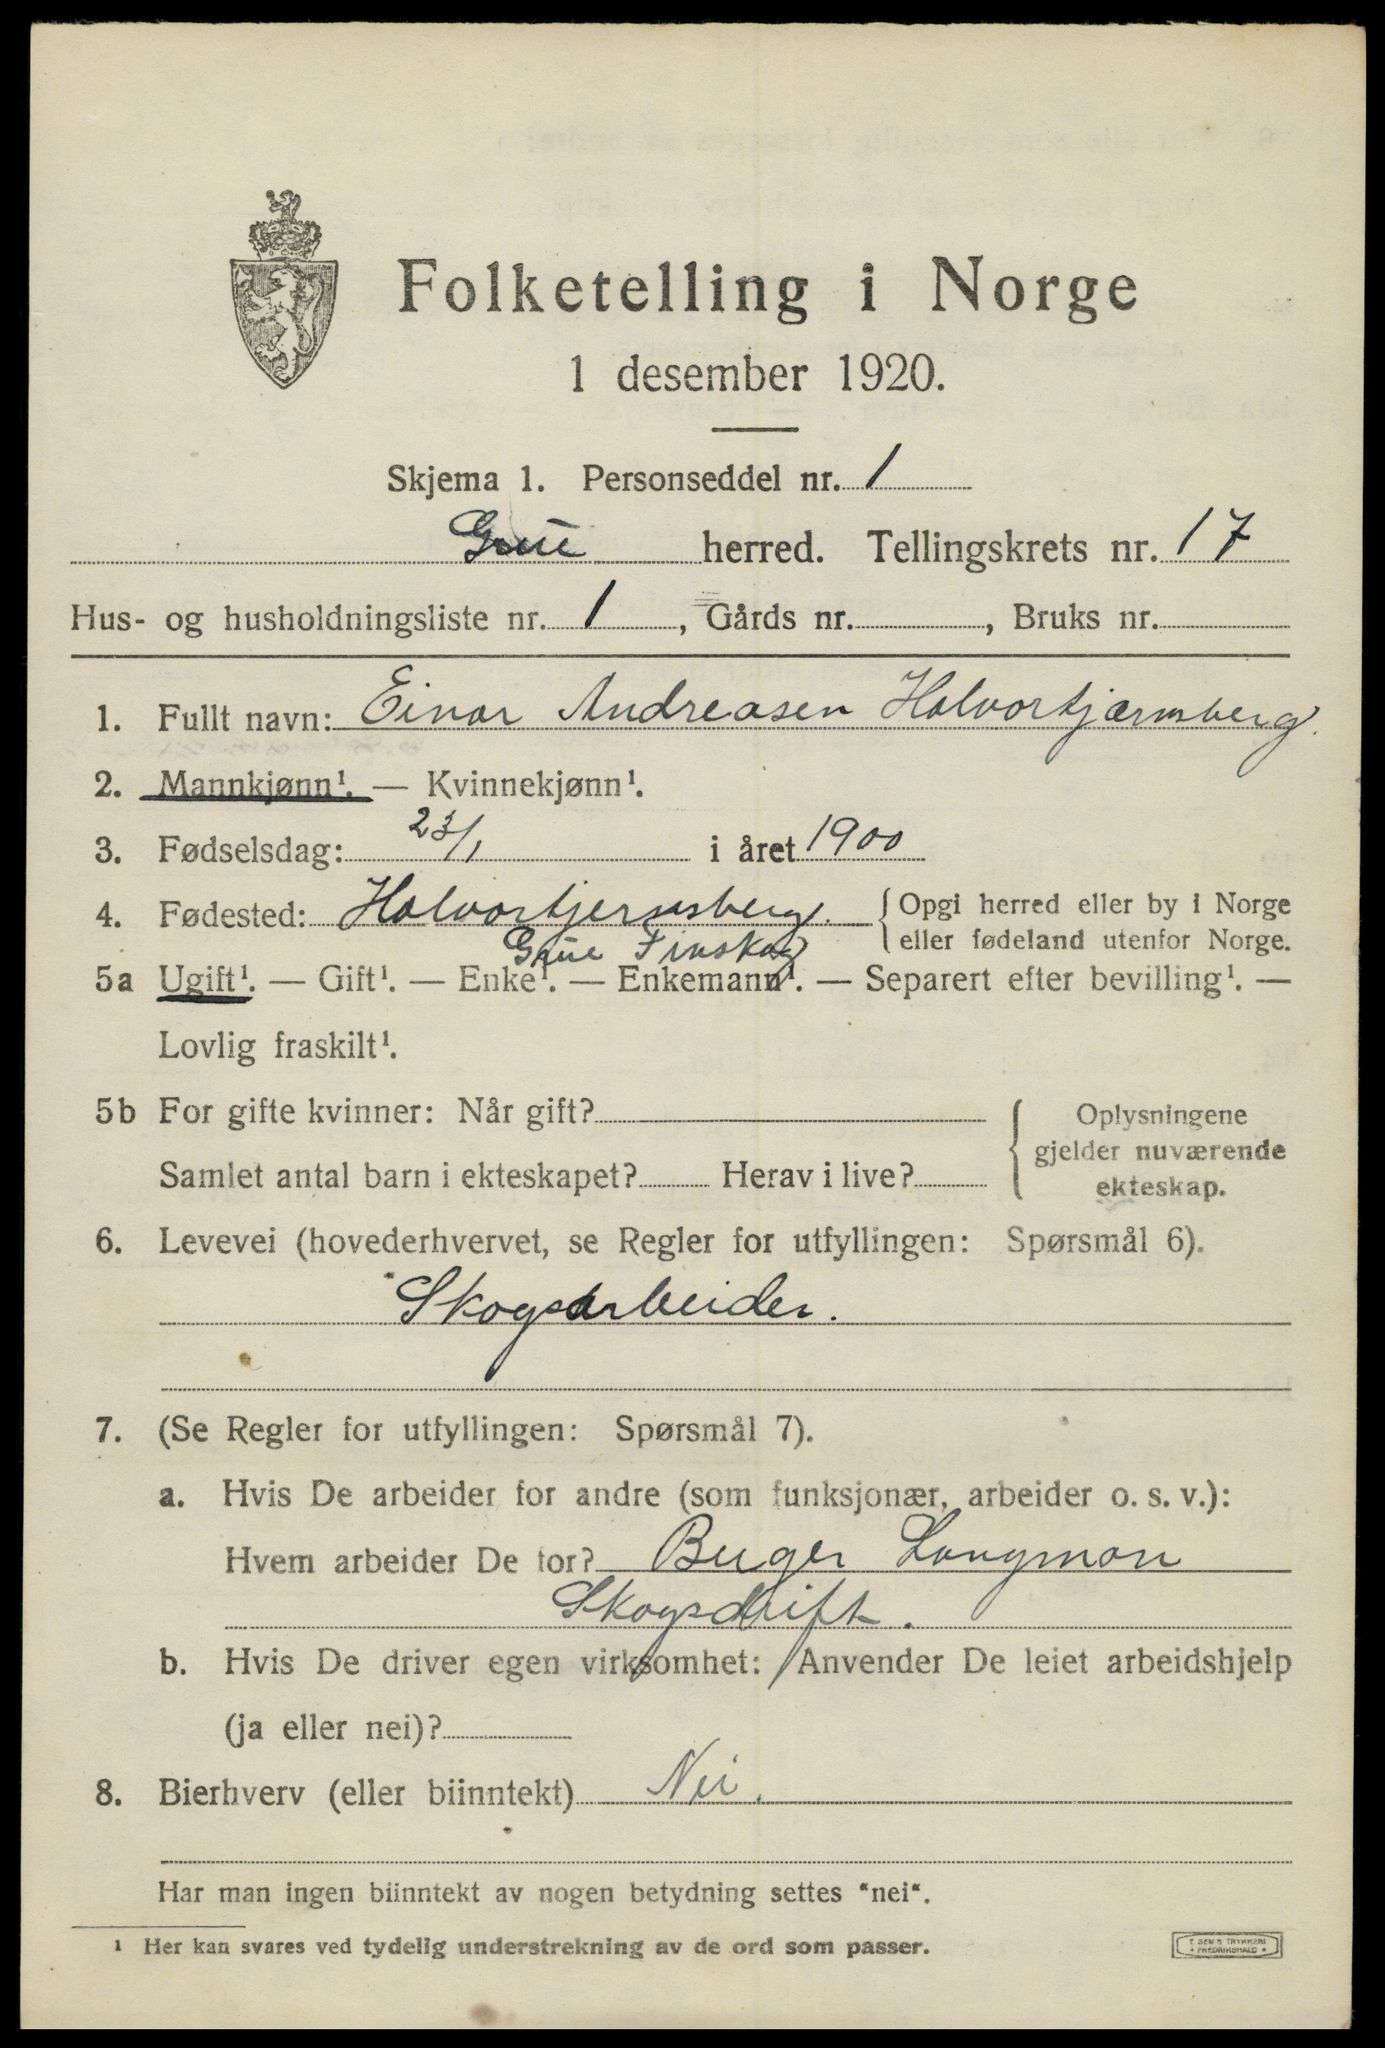 Folketelling i Norge
1 desember 1920.
Skjema 1. Personseddel nr. 1
Grue herred. Tellingskrets nr. 17
Hus- og husholdningsliste nr. 1, Gårds nr. , Bruks nr.
1. Fullt navn: Einar Andreasen Halvortjærnsberg.
2. Mannkjønn¹. — Kvinnekjønn¹.
3. Fødselsdag: 23/1 i året 1900
4. Fødested: Halvortjernsberg. { Opgi herred eller by i Norge
Grue Finskog eller fødeland utenfor Norge.
5a Ugift¹. — Gift¹. — Enke¹. — Enkemann¹. — Separert efter bevilling¹. —
Lovlig fraskilt¹.
5b For gifte kvinner: Når gift? { Oplysningene
gjelder nuværende
Samlet antal barn i ekteskapet? Herav i live? ekteskap.
6. Levevei (hovederhvervet, se Regler for utfyllingen: Spørsmål 6).
Skogsarbeider.
7. (Se Regler for utfyllingen: Spørsmål 7).
a. Hvis De arbeider for andre (som funksjonær, arbeider o. s. v.):
Hvem arbeider De for? Langman
Skogsdrift.
b. Hvis De driver egen virksomhet: Anvender De leiet arbeidshjelp
(ja eller nei)?
8. Bierhverv (eller biinntekt) Nei.
Har man ingen biinntekt av nogen betydning settes “nei“.
¹ Her kan svares ved tydelig understrekning av de ord som passer.
E SEM'S TRYKKERI
• FREDRIKSHALD •